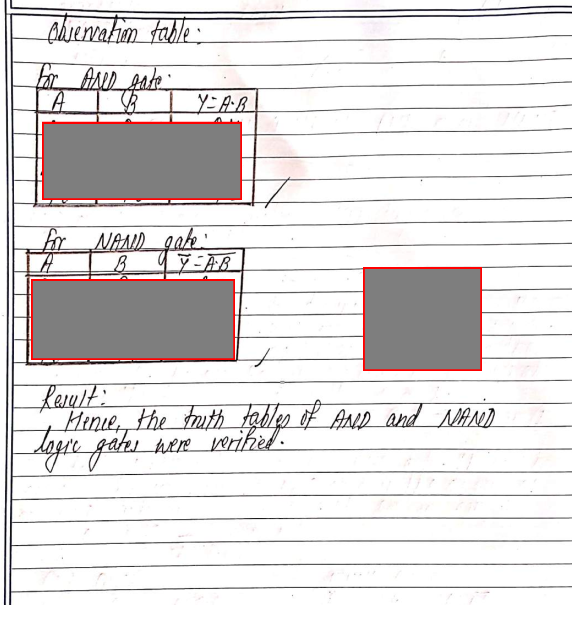 Observation table:
For AND gate:
A B Y=A·B
For NAND gate:
A B Y̅=A̅·̅B̅
Result:
Hence, the truth tables of AND and NAND
logic gates were verified.